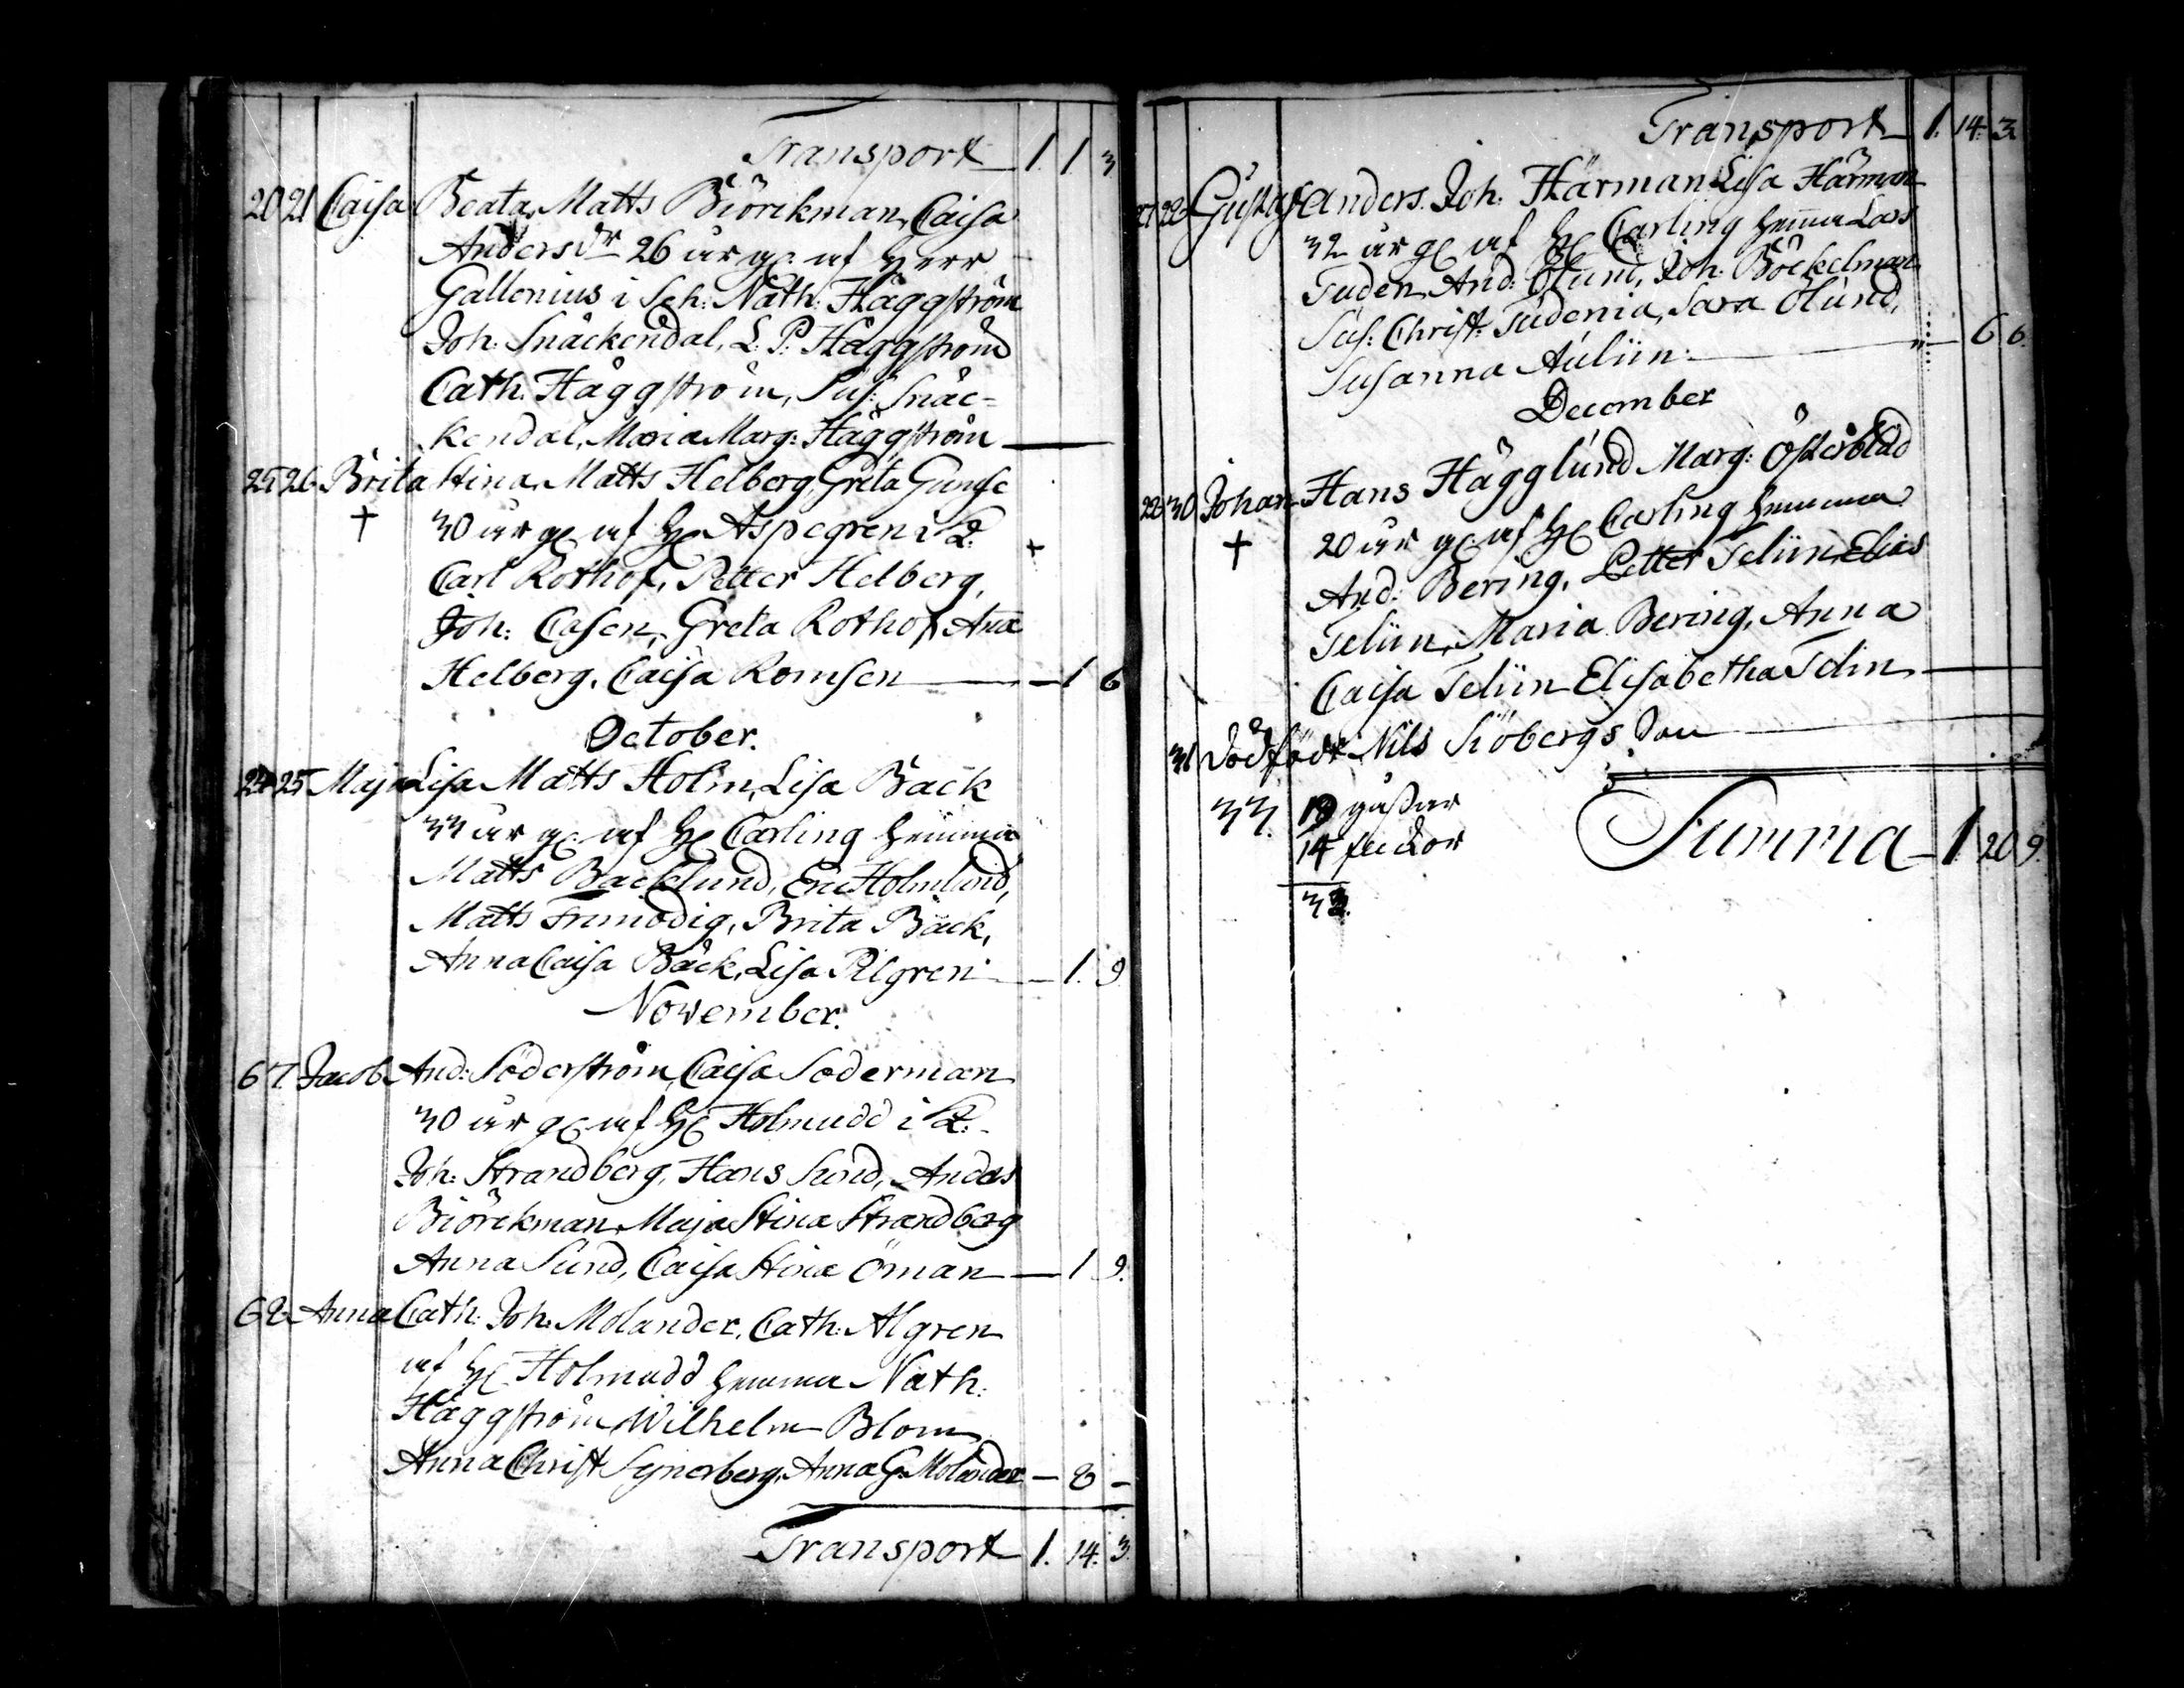 Transport 1. 1 3
20 21 Caisa Beata, Matts Biörckman, Caisa
Anders dr 26 år gl. af Herr
Gallenius i Sch: Nath: Häggström
Joh: Snäckendal, L. P. Häggström
Cath. Häggström, Sus: Snäc-
kendal, Maria Marg: Häggström
25 26 Brita Stina, Matts Helberg, Greta Gunse
† 30 år gl af H Aspegren i
Carl Rothof, Petter Helberg,
Joh: Casen, Greta Rothof, Ana
Helberg, Caisa Romsen — 1 6
October.
24 25 Maja Lisa Matts Holm, Lisa Back
33 år gl. af H Carling hemma
Matts Backlund, Eric Holmlund,
Matts Frimodig, Brita Bäck,
Anna Caisa Bäck, Lisa Pilgren — 1. 9.
November.
6 7. Jacob And: Söderström, Caisa Soderman
30 år gl af H Holmudd i
Joh: Strandberg, Hans Sund, Anders
Biörckman, Maja Stina Strandberg
Anna Sund, Caisa Stina Öman — 1 9.
6 8. Anna Cath: Joh: Molander, Cath: Algren
af H Holmudd hemma Nath:
Häggström Wilhelm Blom
Anna Christ Synerberg, Anna G. Molander — 8 —
Transport 1. 14. 3.
Transport 1. 14. 3
22 Gustaf Anders. Joh: Härman Lisa Härman
32 år gl af H Carling hemma Lars
Tuden And: Ölund, Joh: Böckelman
Sus: Christ: Tudenia, Sara Ölund,
Susanna Auliin — 6 6.
December
22 30 Johan Hans Hägglund Marg: Österblad
† 20 år gl. af H Carling hemma
And: Bering, Petter Teliin, Elias
Teliin, Maria Bering, Anna
Caisa Teliin Elisabetha Telin
31 Dödfödt Nils Siöbergs Son
33. 19 gossar
14 flickor
33.
Summa 1 20 9.